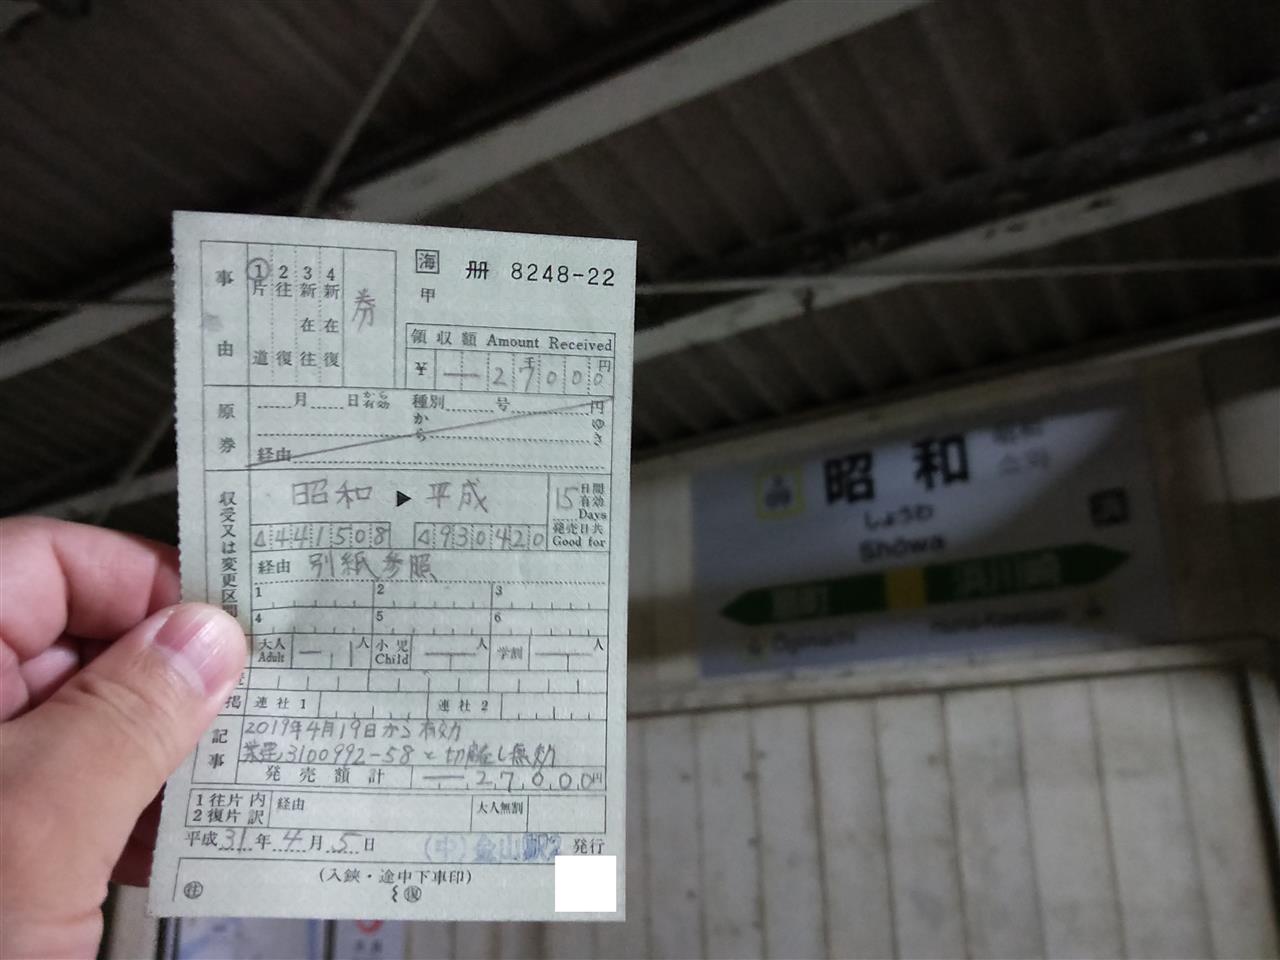 海 冊 8248-22
甲
事由
1片道 2往復 3新在往 4新在復
券
領収額 Amount Received
¥ 27000 千 円
原券
月 日から有効 種別 号 円
から
経由
収受又は変更区間
昭和 ▶ 平成
15日間有効 Days
発売日共 Good for
4441508 4930420
経由 別紙参照
1 2 3
4 5 6
大人 Adult 一 人 小児 Child 人 学割 人
掲 連社1 連社2
記事
2019年4月19日から有効
3100992-58と切離し無効
発売額計 27,000円
1往片 2復片 内訳 経由 大人無割
平成31年4月5日 (中)金山駅2 発行
(入鋏・途中下車印)
復
昭和
しょうわ
Shōwa
浜川崎